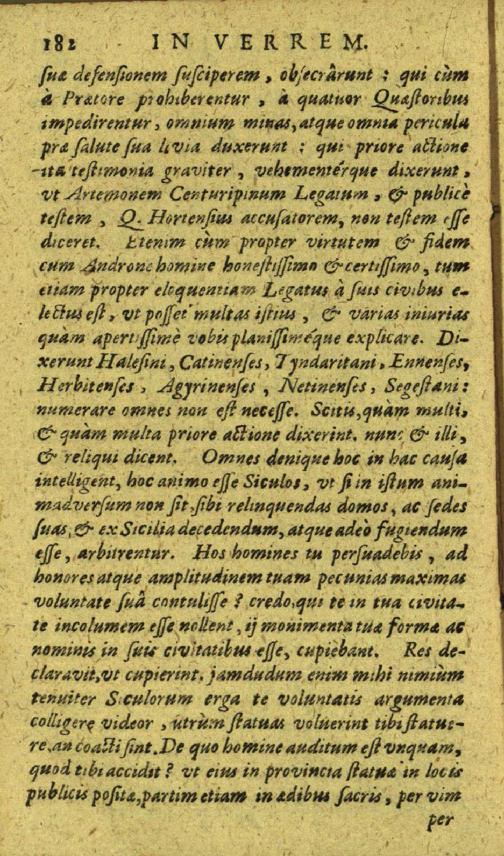 182 IN VERREM.
suæ defensionem susciperem, obsecrârunt : qui cùm
à Prætore prohiberentur, à quatuor Quæstoribus
impedirentur, omnium minas, atque omnia pericula
præ salute sua levia duxerunt : qui priore actione
ita testimonia graviter, vehementérque dixerunt,
vt Artemonem Centuripinum Legatum, & publicè
testem, Q. Hortensius accusatorem, non testem esse
diceret. Etenim cùm propter virtutem & fidem
cum Androne homine honestissimo & certissimo, tum
etiam propter eloquentiam Legatus à suis civibus e-
lectus est, vt posset multas istius, & varias iniurias
quàm apertissimè vobis planissiméque explicare. Di-
xerunt Halesini, Catinenses, Tyndaritani, Ennenses,
Herbitenses, Agyrinenses, Netinenses, Segestani :
numerare omnes non est necesse. Scitis, quàm multi,
& quàm multa priore actione dixerint. nunc & illi,
& reliqui dicent. Omnes denique hoc in hac causa
intelligent, hoc animo esse Siculos, vt si in istum ani-
madversum non sit, sibi relinquendas domos, ac sedes
suas, & ex Sicilia decedendum, atque adeò fugiendum
esse, arbitrentur. Hos homines tu persuadebis, ad
honores atque amplitudinem tuam pecunias maximas
voluntate suâ contulisse ? credo, qui te in tua civita-
te incolumem esse nollent, ij monimenta tuæ formæ ac
nominis in suis civitatibus esse, cupiebant. Res de-
claravit, vt cupierint. jamdudum enim mihi nimium
tenuiter Siculorum erga te voluntatis argumenta
colligere videor, utrùm statuas voluerint tibi statue-
re, an coacti sint. De quo homine auditum est vnquam,
quod tibi accidit ? vt eius in provincia statuæ in locis
publicis positæ, partim etiam in ædibus sacris, per vim
per